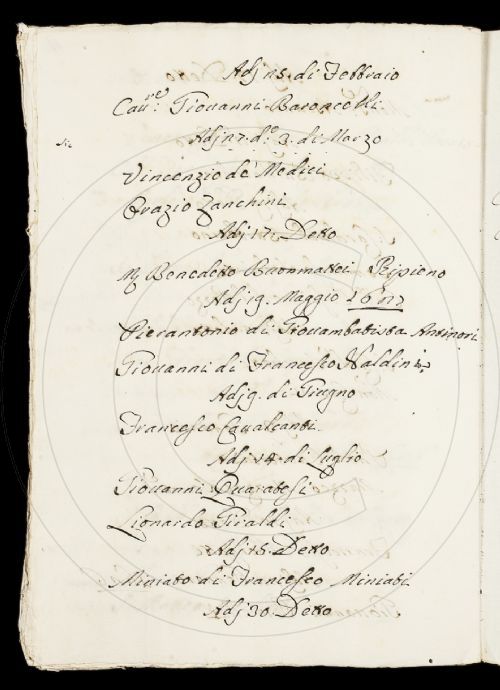 Adj 25. di Febbraio
Cau.re Giouanni Baroncelli
Adj d.o 3. di Marzo
sic
Vincenzio de' Medici
Orazio Zanchini
Adj 17. Detto
Benedetto Buonmattei Ripieno
Adj 19. Maggio
Pierantonio di Giouambatista Antinori
Giouanni di Francesco Naldini
Adj 9. di Giugno
Francesco Caualcanti
Adj 14. di Luglio
Giouanni Quaratesi
Lionardo Giraldi
Adj 15. Detto
Miniato di Francesco Miniati
Adj 30. Detto